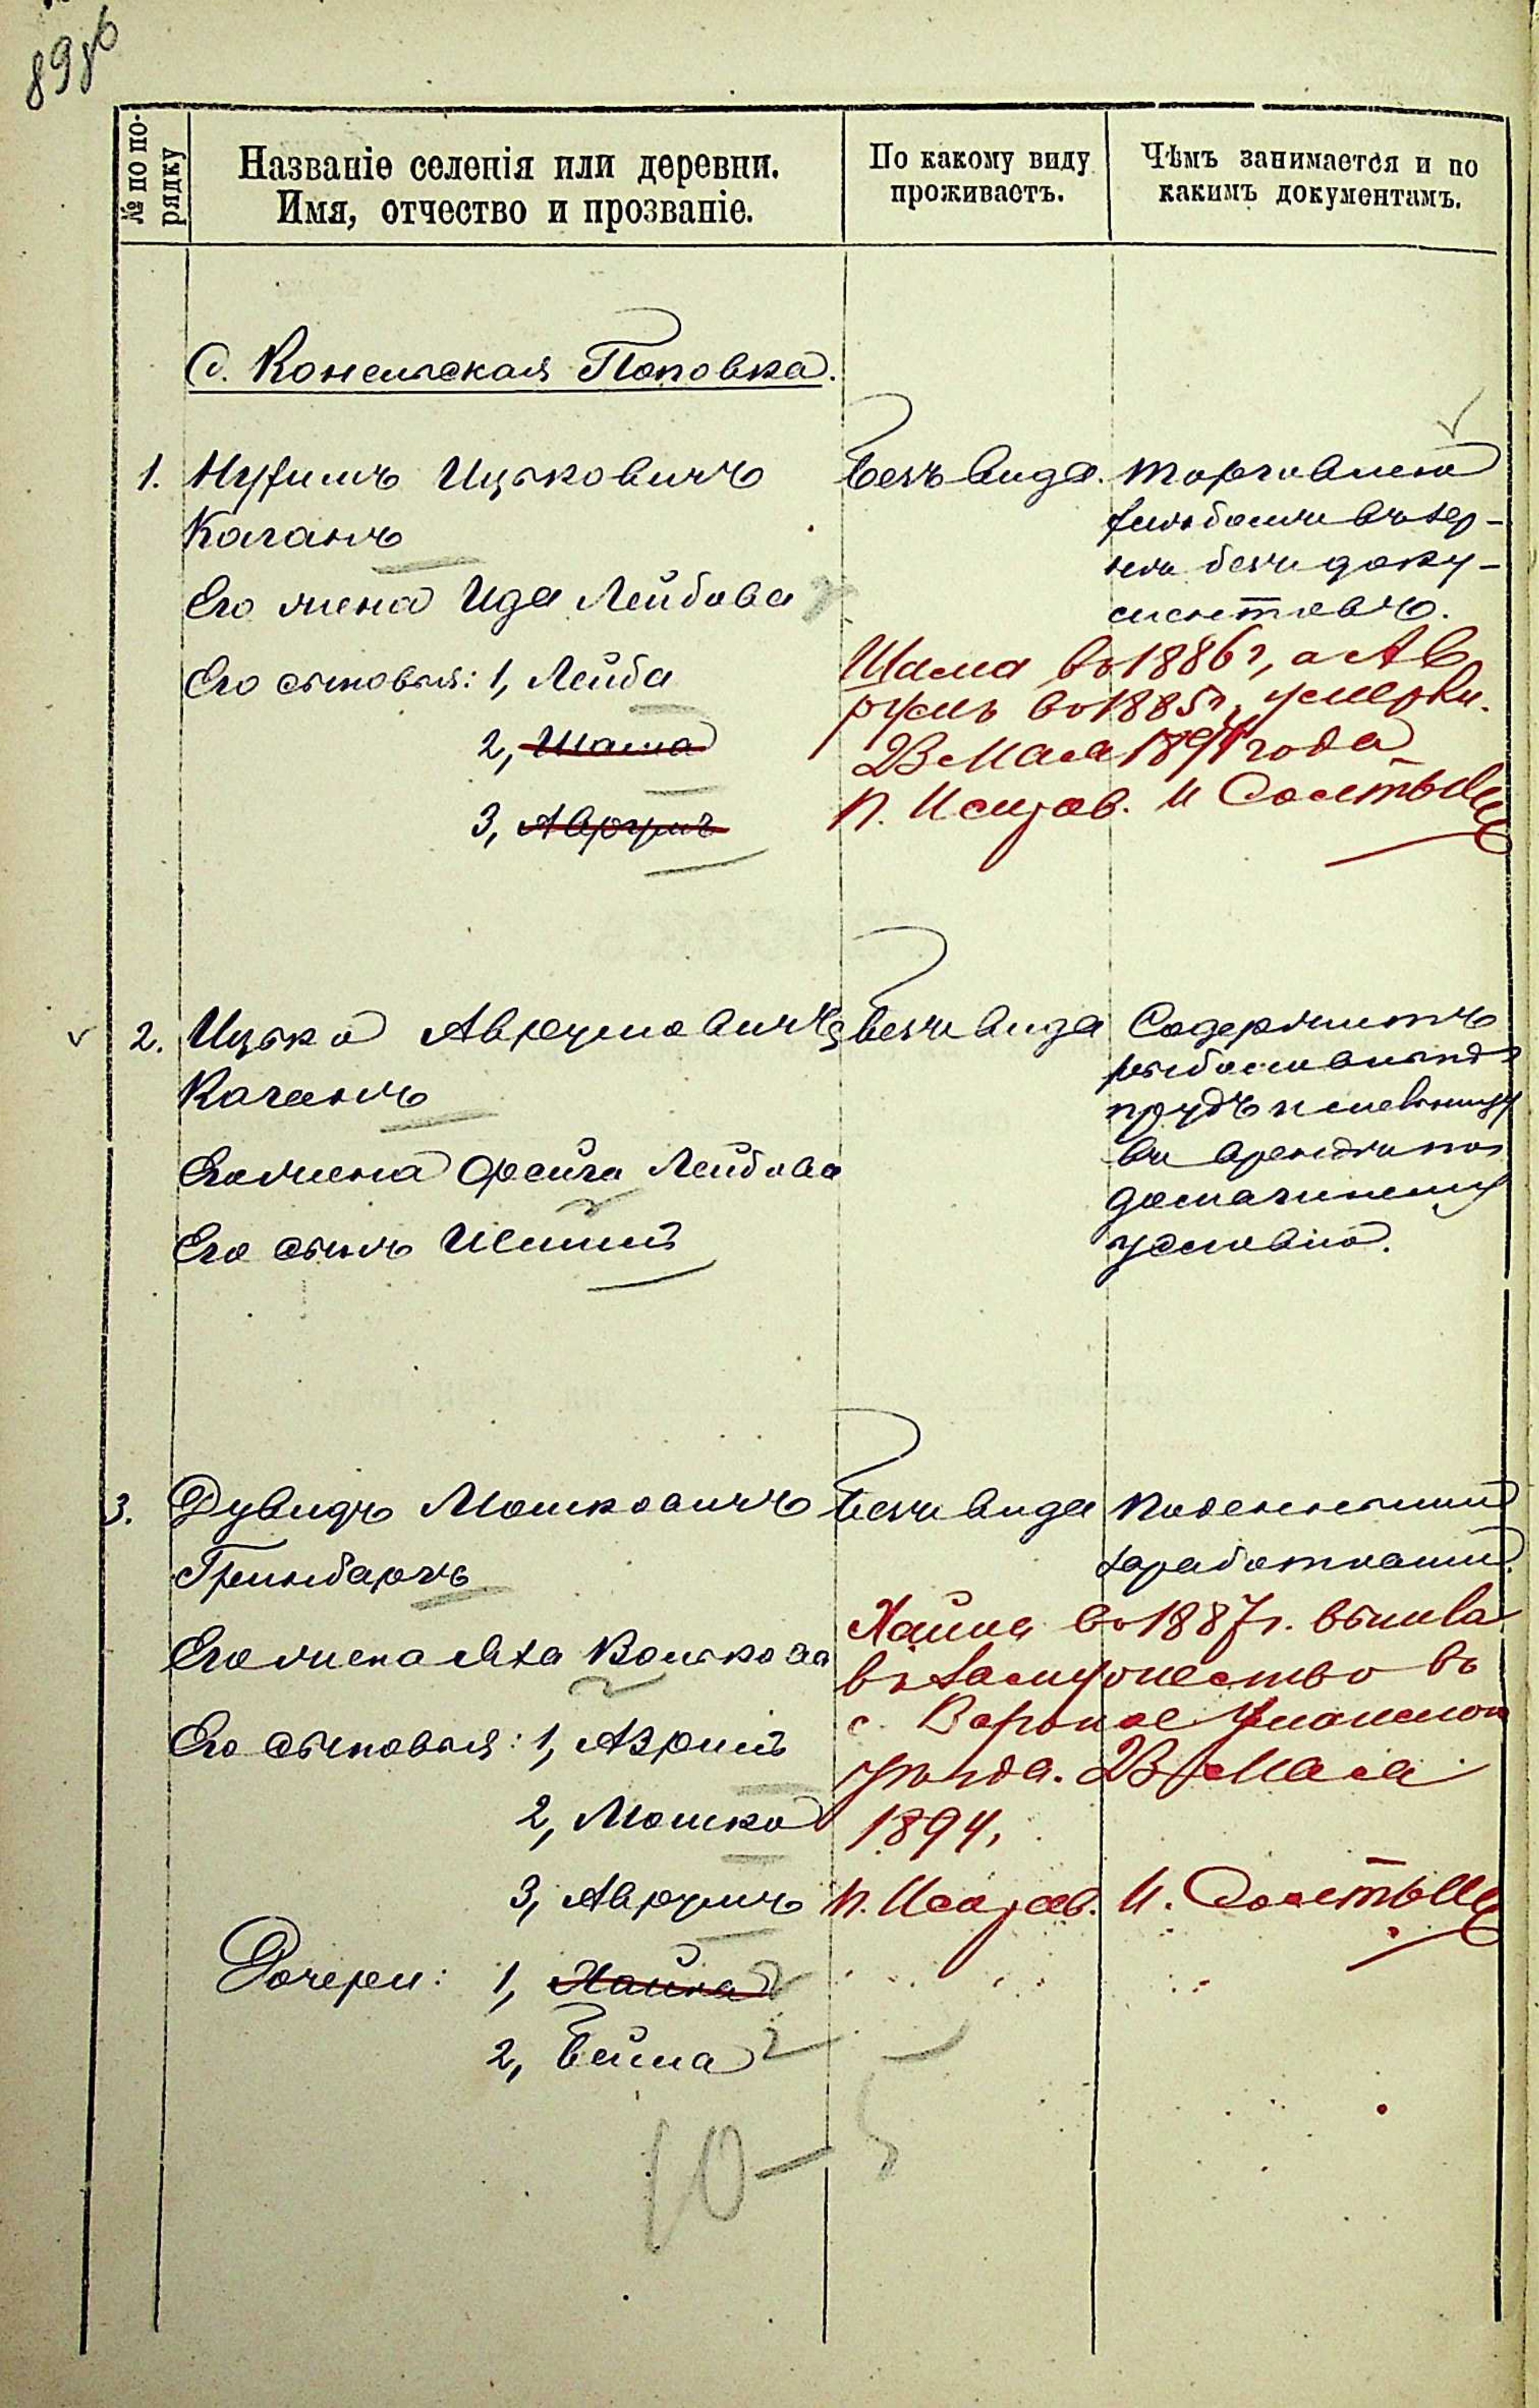 89об
№ по по-
рядку
Названіе селенія или деревни.
Имя, отчество и прозваніе.
По какому виду
проживаетъ.
Чѣмъ занимается и по
какимъ документамъ.
С. Конельская Поповка.
1. Нухимъ Ицьковичъ
Каганъ
Его жена Ида Лейбова
Его сыновья: 1, Лейба
2, Шама
3, Аврумъ
Безъ вида.
торговлею
хлѣбомъ въ зер-
нѣ безъ доку-
ментовъ.
Шама въ 1886 г, а Ав
румъ въ 1885 г, умерли.
23 Мая 1894 года
П. Исправ. И
2. Ицько Аврумовичъ
Каганъ
Его жена Фейга Лейбова
Его сынъ
Безъ вида
Содержитъ
рыболовный
прудъ и мельницу
въ аренду по
домашнему
условію.
3. Дувидъ Мошковичъ
Гринбаргъ
Его жена Яха Волькова
Его сыновья: 1, Азріилъ
2, Мошко
3, Аврумъ
Дочери: 1, Хайка
2, Бейла
Безъ вида
Поденными
заработками.
въ 1887 г. вышла
въ замужество въ
с. Вороное Уманскаго
уѣзда. 23 Мая
1894,
П. Исправ. И.
10 — 5